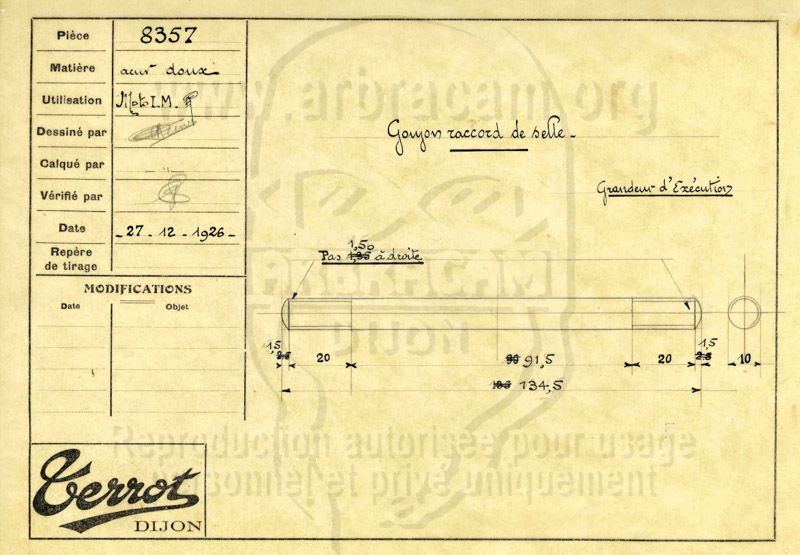 Pièce 8357
Matière acier doux
Utilisation Moto I.M.
Dessiné par
Calqué par
Vérifié par
Date -27-12-1926-
Repère
de tirage
MODIFICATIONS
Date Objet
Terrot
DIJON
www.arbracam.org
Goujon raccord de selle-
Grandeur d'Exécution
1,50
Pas 1,25 à droite
ARBRACAM
DIJON
1,5 1,5
2.5 20 90 91,5 20 2.5 10
134,5
Reproduction autorisée pour usage
personnel et privé uniquement